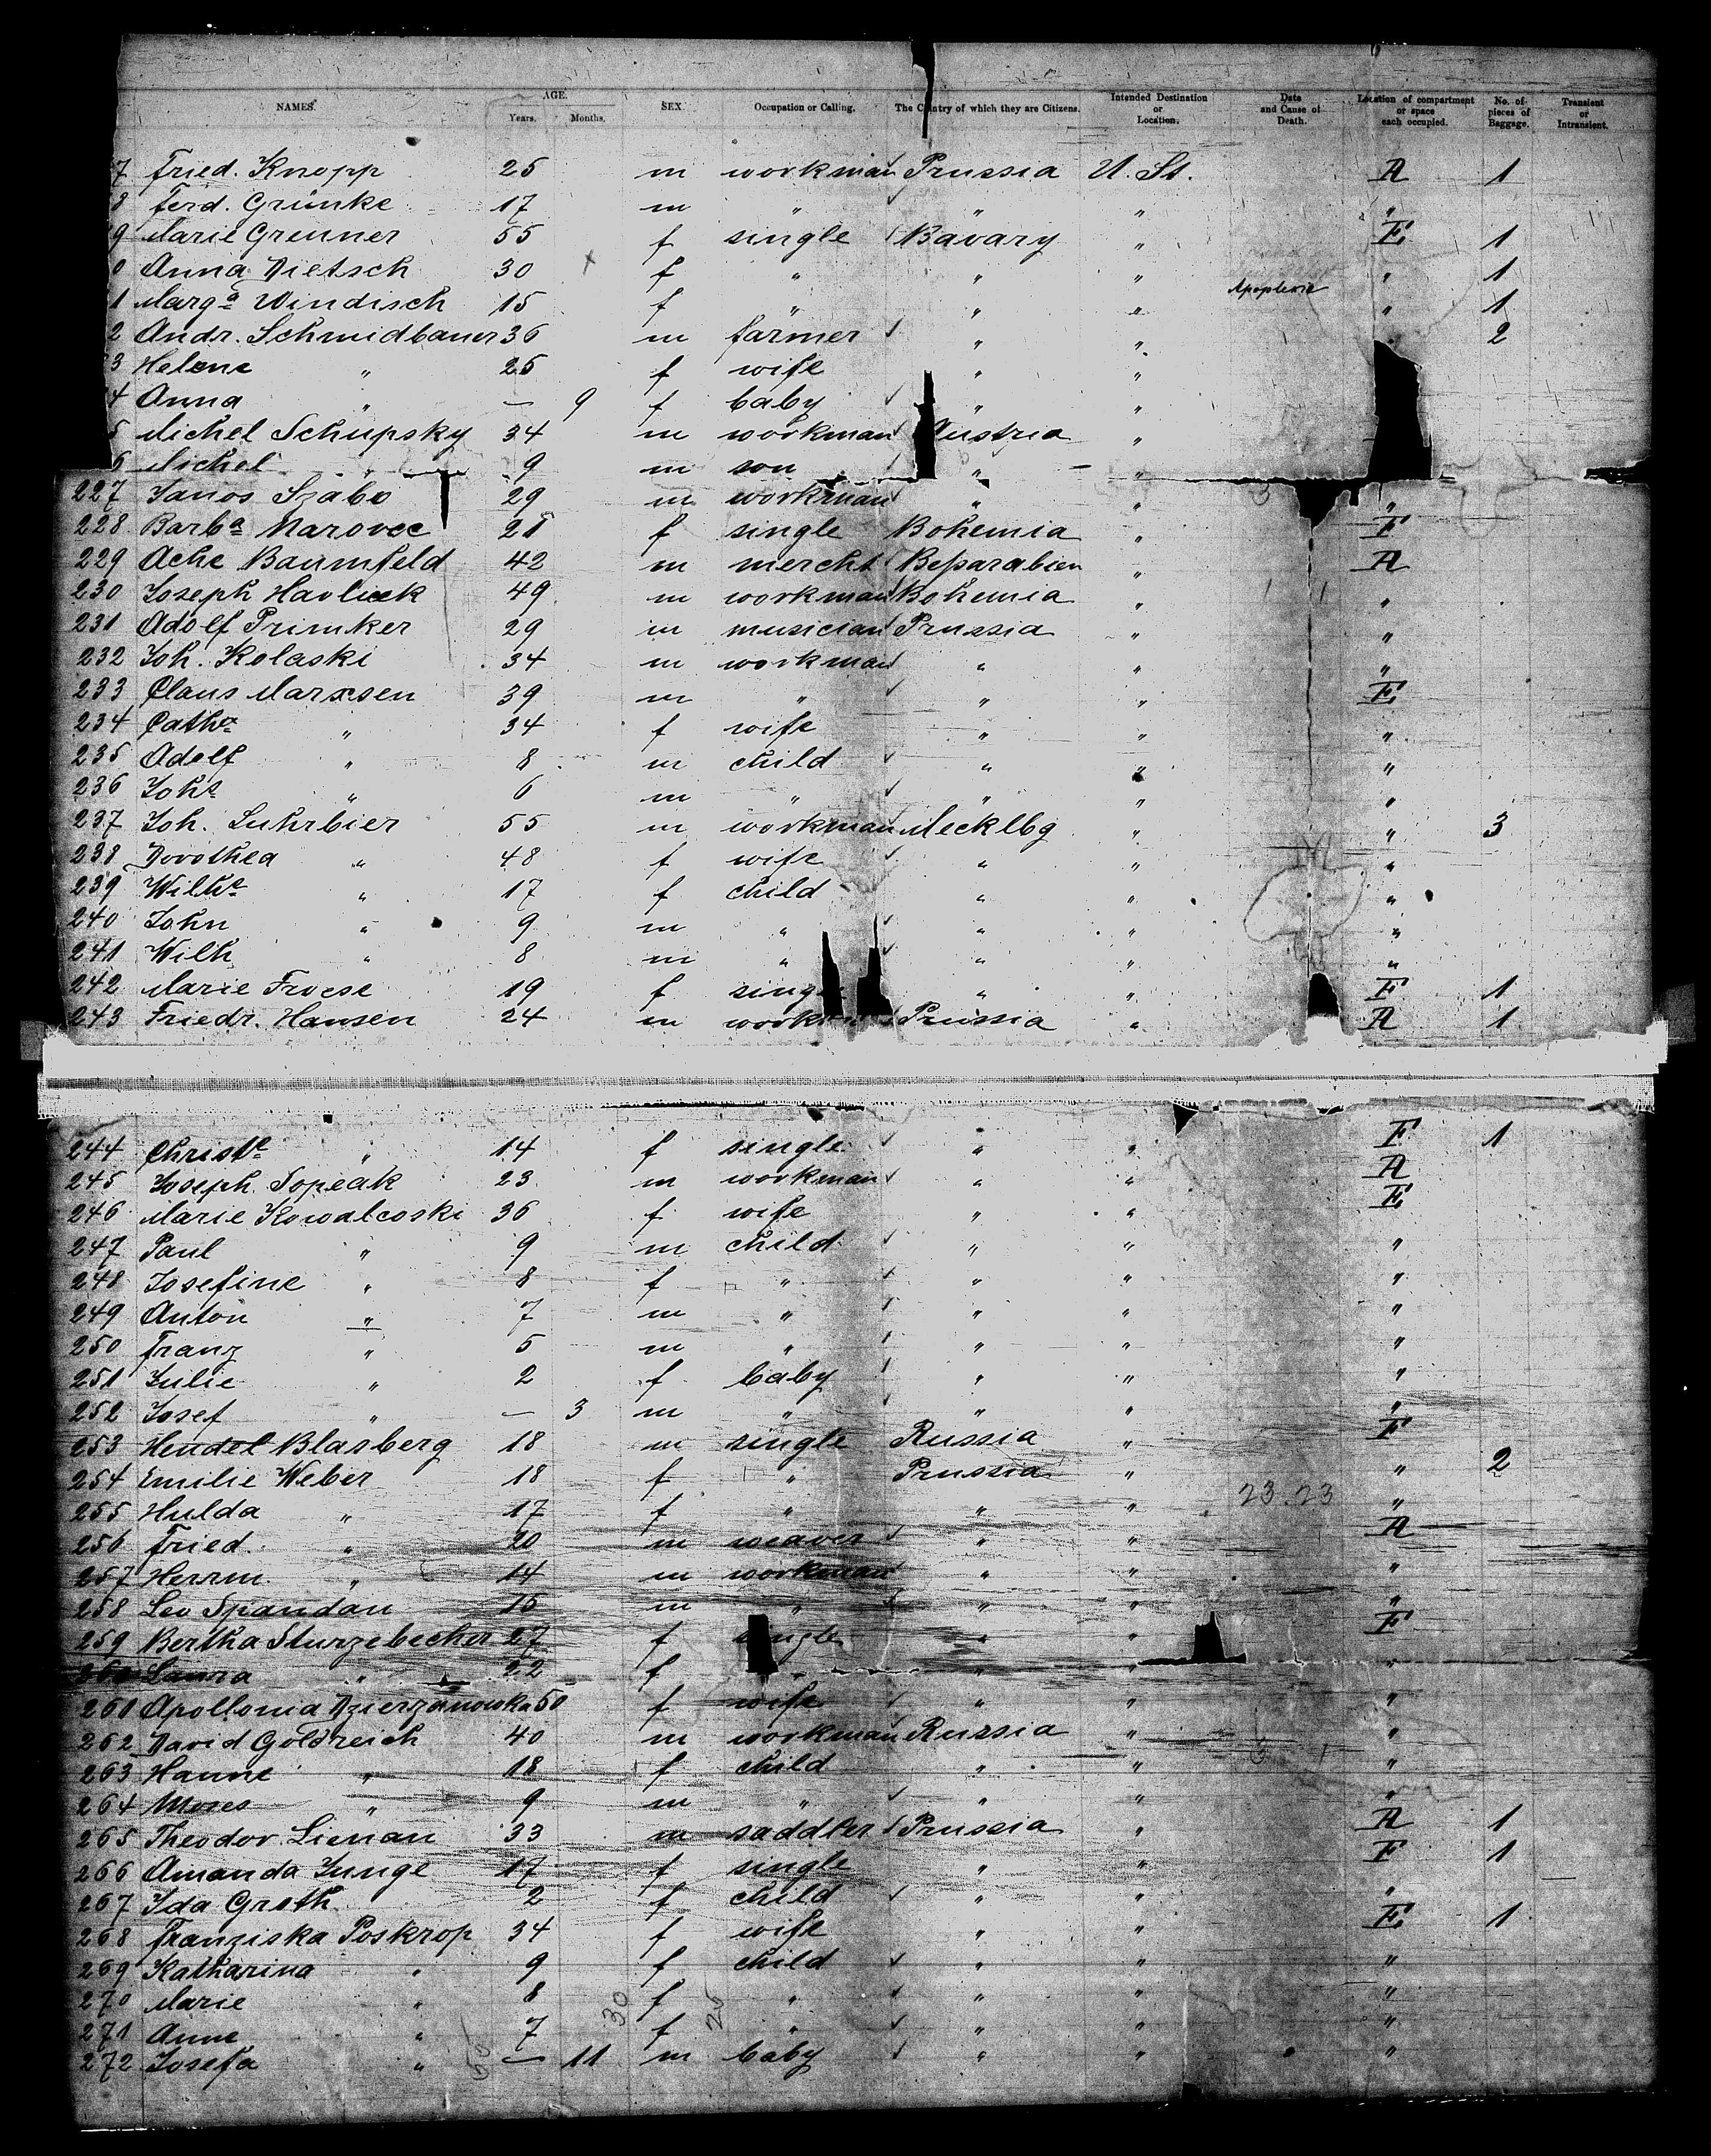 NAMES. AGE. Years. Months. SEX. Occupation or Calling. The Country of which they are Citizens. Intended Destination or Location. Date and Cause of Death. Location of compartment or space each occupied. No. of pieces of Baggage. Transient or Intransient.
7 Fried. Knopp 25 m workman Prussia U. St. A 1
8 Ferd. Grünke 17 m " " " "
9 Marie Greuner 55 f single Bavary " E 1
0 Anna Dietsch 30 f " " " " 1
1 Marg.a Windisch 15 f " " " Apoplexie " 1
2 Andr. Schmidbauer 36 m farmer " " 2
3 Helene " 25 f wife " "
4 Anna " — 9 f baby " "
5 Michel Schupsky 34 m workman Austria "
6 Michel " 9 m son " "
227 Janos Szabo 29 m workman " " "
228 Barb.a Marovec 21 f single Bohemia " F
229 Ache Baumfeld 42 m mercht Beßarabien " A
230 Joseph Havlicek 49 m workman Bohemia " "
231 Adolf Primker 29 m musician Prussia " "
232 Joh. Kolaski 34 m workman " " "
233 Claus Marxsen 39 m " " " E
234 Cath.a " 34 f wife " " "
235 Adolf " 8 m child " " "
236 Joh.s " 6 m " " " "
237 Joh. Suhrbier 55 m workman Mecklbg " " 3
238 Dorothea " 48 f wife " " "
239 Wilh.e " 17 f child " " "
240 John " 9 m " " " "
241 Wilh " 8 m " " " "
242 Marie Froese 19 f single " " F 1
243 Friedr. Hansen 24 m workman Prussia " A 1
244 Christ.e " 14 f single " " F 1
245 Joseph Sopeak 23 m workman " " A
246 Marie Kowalcoski 36 f wife " " E
247 Paul " 9 m child " " "
248 Josefine " 8 f " " " "
249 Anton " 7 m " " " "
250 Franz " 5 m " " " "
251 Julie " 2 f baby " " "
252 Josef " — 3 m " " " "
253 Hendel Blasberg 18 m single Russia " F
254 Emilie Weber 18 f " Prussia " " 2
255 Hulda " 17 f " " " 23.23 "
256 Fried. " 20 m weaver " " A
257 Herrm " 14 m workman " " "
258 Leo Spandau 15 m " " " "
259 Bertha Sturzebecher 27 f single " " F
260 Laura " 22 f " " " "
261 Apollonia Dzierzanowska 50 f wife " " "
262 David Goldreich 40 m workman Russia " "
263 Hanne " 18 f child " " "
264 Moses " 9 m " " " "
265 Theodor Lienau 33 m saddler Prussia " A 1
266 Amanda Junge 17 f single " " F 1
267 Ida Groth 2 f child " " "
268 Franziska Poskrop 34 f wife " " E 1
269 Katharina " 9 f child " " "
270 Marie " 8 f " " " "
271 Anne " 7 f " " " "
272 Josefa " — 11 m baby " " "
30 26